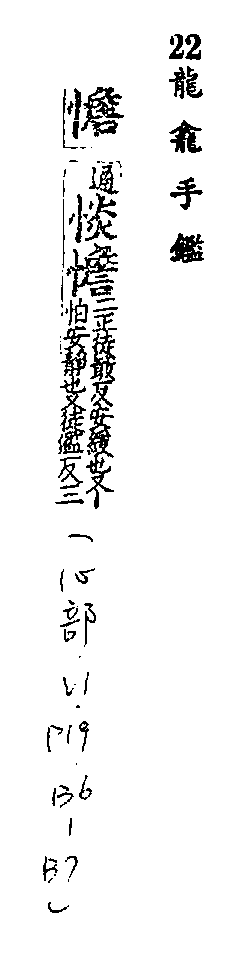 22 龍龕手鑑
憺 通 惔憺 二正徒敢反安緩也又
怕安靜也又徒濫反三
(心部.V1.P19.B6-B7)